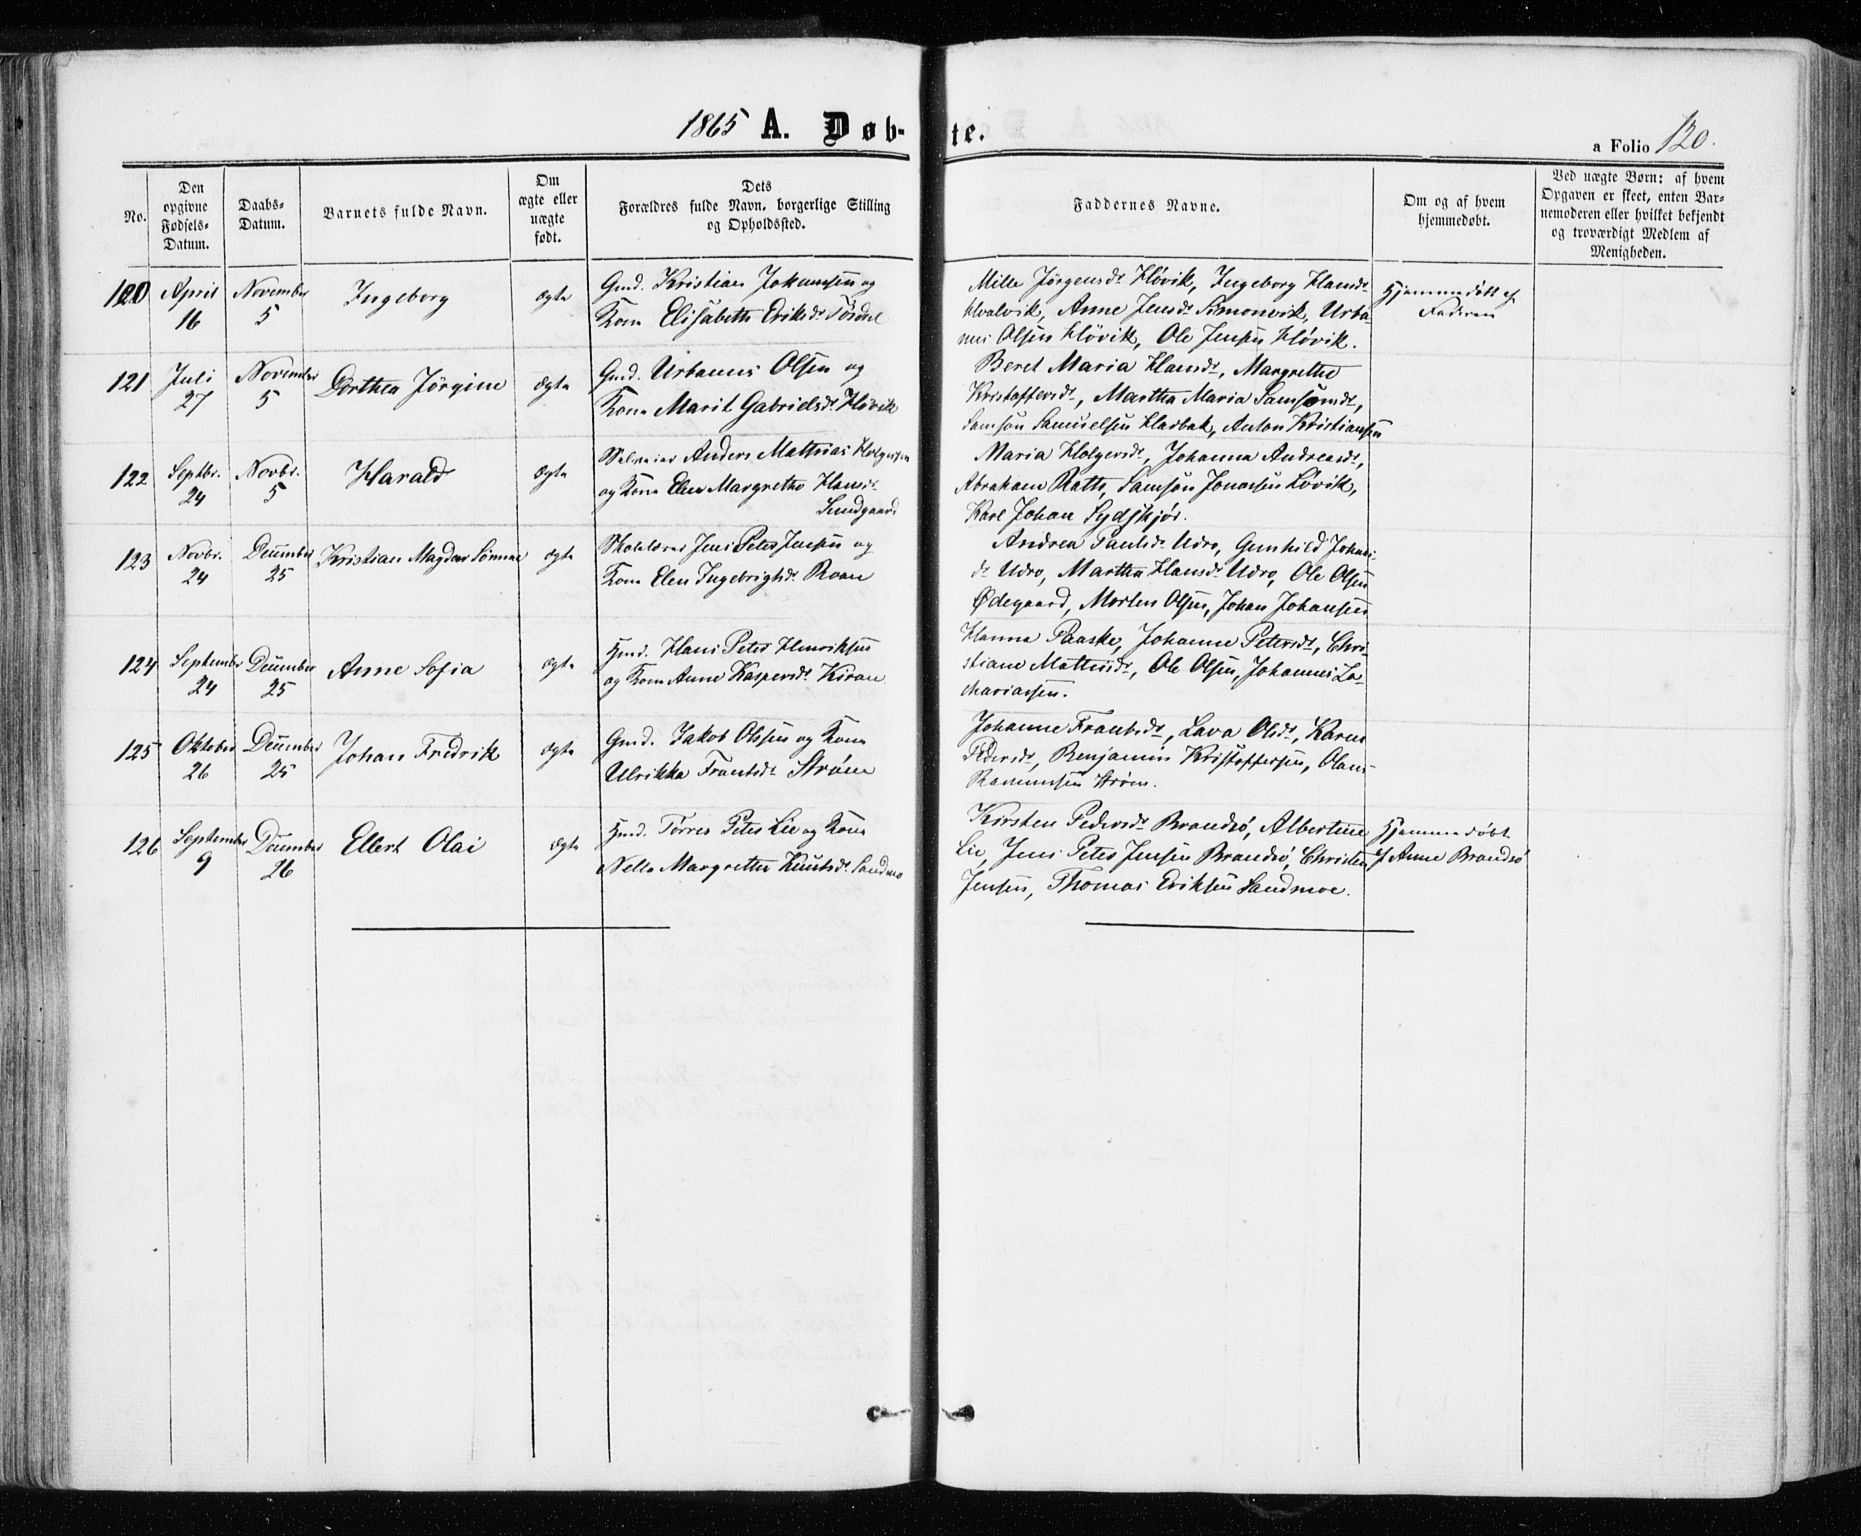 1865 A. Døb- te.
a Folio 120.
No.
Den opgivne Fødsels-Datum.
Daabs-Datum.
Barnets fulde Navn.
Om ægte eller uægte født.
Dets Forældres fulde Navn, borgerlige Stilling og Opholdssted.
Faddernes Navne.
Om og af hvem hjemmedøbt.
Ved uægte Børn: af hvem Opgaven er skeet, enten Barnemoderen eller hvilket bekjendt og troværdigt Medlem af Menigheden.
120 April 16 November 5 Ingeborg ægte
Gmd. Kristian Johansen og
Kone Elisabeth Eriksdr
Mille Jørgensdr Høvik, Ingeborg Hansdr
Hvalvik, Anne Jensdr Simonvik, Urba-
nus Olsen Høvik, Ole Jensen Høvik.
Hjemmedøbt af
Faderen
121 Juli 27 November 5 Dorthea Jørgine ægte
Gmd. Urbanus Olsen og
Kone Marit Gabrielsdr Høvik
Beret Maria Hansdr, Margrethe
Kristoffersdr, Martha Maria Samsonsdr,
Samson Samuelsen Harbak, Anton Kristiansen
122 Septbr. 24 Novbr. 5 Harald ægte
Anders Mathias Holgersen
og Kone Elen Margrethe Hansdr
Sundgaard
Maria Holgersdr, Johanna Andreasdr,
Abraham Ratts, Samson Jonassen Løvik,
Karl Johan Sydskjør.
123 Novbr. 24 December 25 Kristian Magdar Sønne ægte
Skolelærer Jens Peter Jensen og
Kone Elen Ingebrigtsdr Roan
Andrea Paulsdr Udro, Gunhild Johans-
dr Udro, Martha Hansdr Udro, Ole Olsen
Ødegaard, Morten Olsen, Johan Johansen
124 September 24 December 25 Anne Sofia ægte
Hmd. Hans Peter Henriksen
og Kone Anne Kaspersdr Kiran
Hanna Paaske, Johanne Petersdr, Chri-
stiane Mathisdr, Ole Olsen, Johannes Za-
chariassen.
125 Oktober 26 December 25 Johan Fredrik ægte
Gmd. Jakob Olssen og Kone
Ulrikka Frantsdr Strøm
Johanne Frantsdr, Lava Olsdr, Karen
Pedersdr, Benjamin Kristoffersen, Olaus
Rasmussen Strøm.
126 September 9 December 26 Ellert Olai ægte
Hmd. Torres Peter Lie og Kone
Nella Margrethe Knutsdr Sandmo
Kirsten Pedersdr Brandsø, Albertine
Lie, Jens Peter Jensen Brandsø, Christen
Jensen, Thomas Eriksen Sandmoe.
Hjemmedøbt
af Anne Brandsø